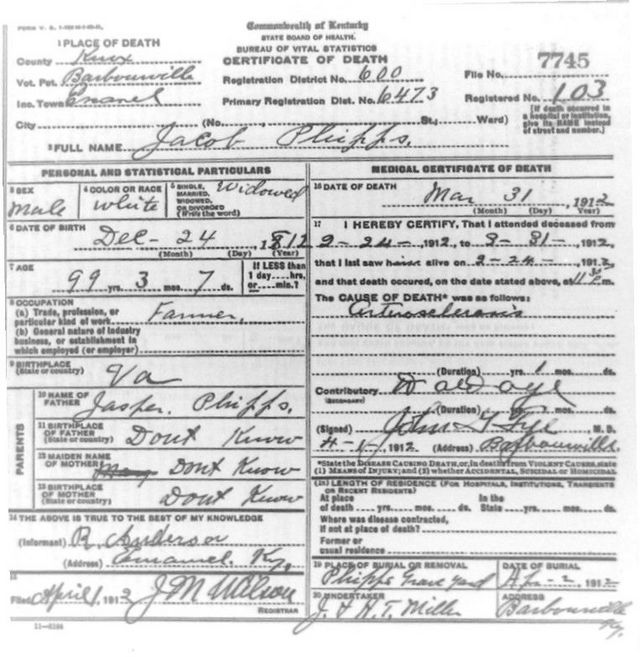 Commonwealth of Kentucky
STATE BOARD OF HEALTH.
BUREAU OF VITAL STATISTICS
CERTIFICATE OF DEATH
1 PLACE OF DEATH
County Knox
Vot. Pct. Barbourville
Inc. Town Emanel
City (No. St., Ward)
Registration District No. 600
Primary Registration Dist. No. 6473
File No. 7745
Registered No. 103
[If death occurred in a hospital or institution, give its NAME instead of street and number.]
2 FULL NAME Jacob Phipps.
PERSONAL AND STATISTICAL PARTICULARS
3 SEX Male
4 COLOR OR RACE White
5 SINGLE, MARRIED, WIDOWED, OR DIVORCED (Write the word) Widowed
6 DATE OF BIRTH Dec - 24 1812
(Month) (Day) (Year)
7 AGE 99 yrs. 3 mos. 7 ds.
If LESS than 1 day....hrs. or....min.?
8 OCCUPATION
(a) Trade, profession, or particular kind of work Farmer.
(b) General nature of industry business, or establishment in which employed (or employer)
9 BIRTHPLACE
(State or country) Va
PARENTS
10 NAME OF FATHER Jasper Phipps.
11 BIRTHPLACE OF FATHER
(State or country) Dont Know
12 MAIDEN NAME OF MOTHER Dont Know
13 BIRTHPLACE OF MOTHER
(State or country) Dont Know
14 THE ABOVE IS TRUE TO THE BEST OF MY KNOWLEDGE
(Informant) R. Anderson
(Address) Emanuel, Ky.
15
Filed April 1, 1912 J M Wilson
REGISTRAR
MEDICAL CERTIFICATE OF DEATH
16 DATE OF DEATH Mar 31, 1912
(Month) (Day) (Year)
17 I HEREBY CERTIFY, That I attended deceased from
2-24-, 1912, to 3-31-, 1912,
that I last saw him alive on 2-24-, 1912,
and that death occured, on the date stated above, at 11 30 P m.
The CAUSE OF DEATH* was as follows:
Arterosclerosis
(Duration) yrs. 1 mos. ds.
Contributory Old age
(SECONDARY)
(Duration) yrs. mos. ds.
(Signed) John G Tye, M. D.
4-1-, 1912 (Address) Barbourville
*State the DISEASE CAUSING DEATH, or, in deaths from VIOLENT CAUSES, state (1) MEANS OF INJURY; and (2) whether ACCIDENTAL, SUICIDAL or HOMICIDAL
18 LENGTH OF RESIDENCE (FOR HOSPITALS, INSTITUTIONS, TRANSIENTS OR RECENT RESIDENTS)
At place of death .... yrs. .... mos. .... ds. In the State .... yrs. .... mos. .... ds.
Where was disease contracted, if not at place of death?
Former or usual residence
19 PLACE OF BURIAL OR REMOVAL Phipps Grave yard
DATE OF BURIAL Apr-2, 1912
20 UNDERTAKER J. & H. T. Miller
ADDRESS Barbourville Ky.
11-6184